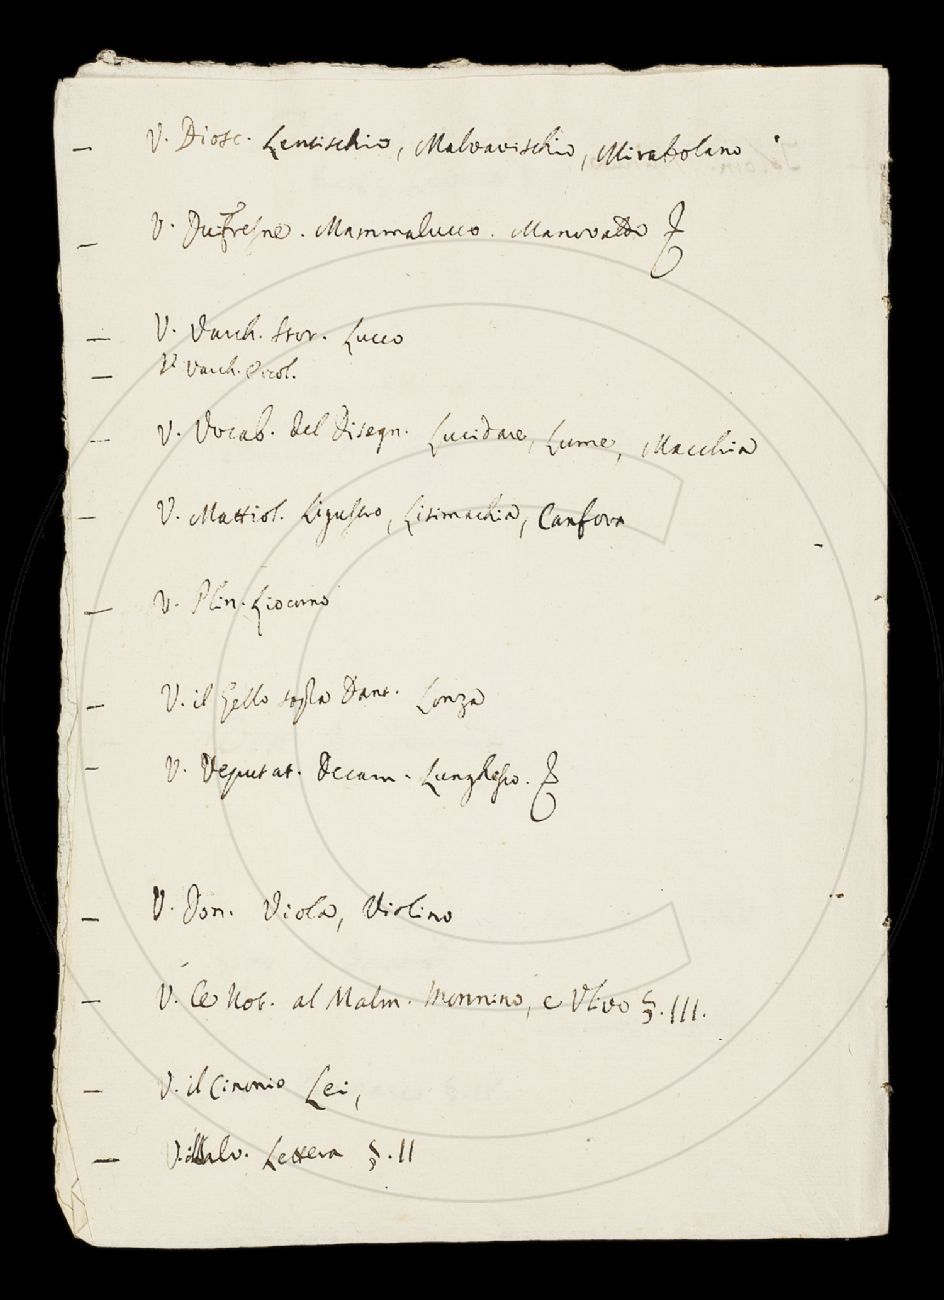 — V. Diosc. Lentischio, Malvavischio, Mirabolano
— V. Dufresne. Mammalucco. Manovaldo
— V. Varch. Stor. Lucco
— V. Varch. Ercol.
— V. Vocab. del Disegn. Lucidare, Lume, Macchia
— V. Mattiol. Ligustro, Lisimachia, Canfora
— V. Plin. Liocorno
— V. il Gello sopra Dant. Lonza
— V. Deputat. Decam. Lunghesso.
— V. Don. Viola, Violino
— V. Le Not. al Malm. Monnino, e Ulivo §. III.
— V. il Cinonio Lei,
— V. il Salv. Lettera §. II